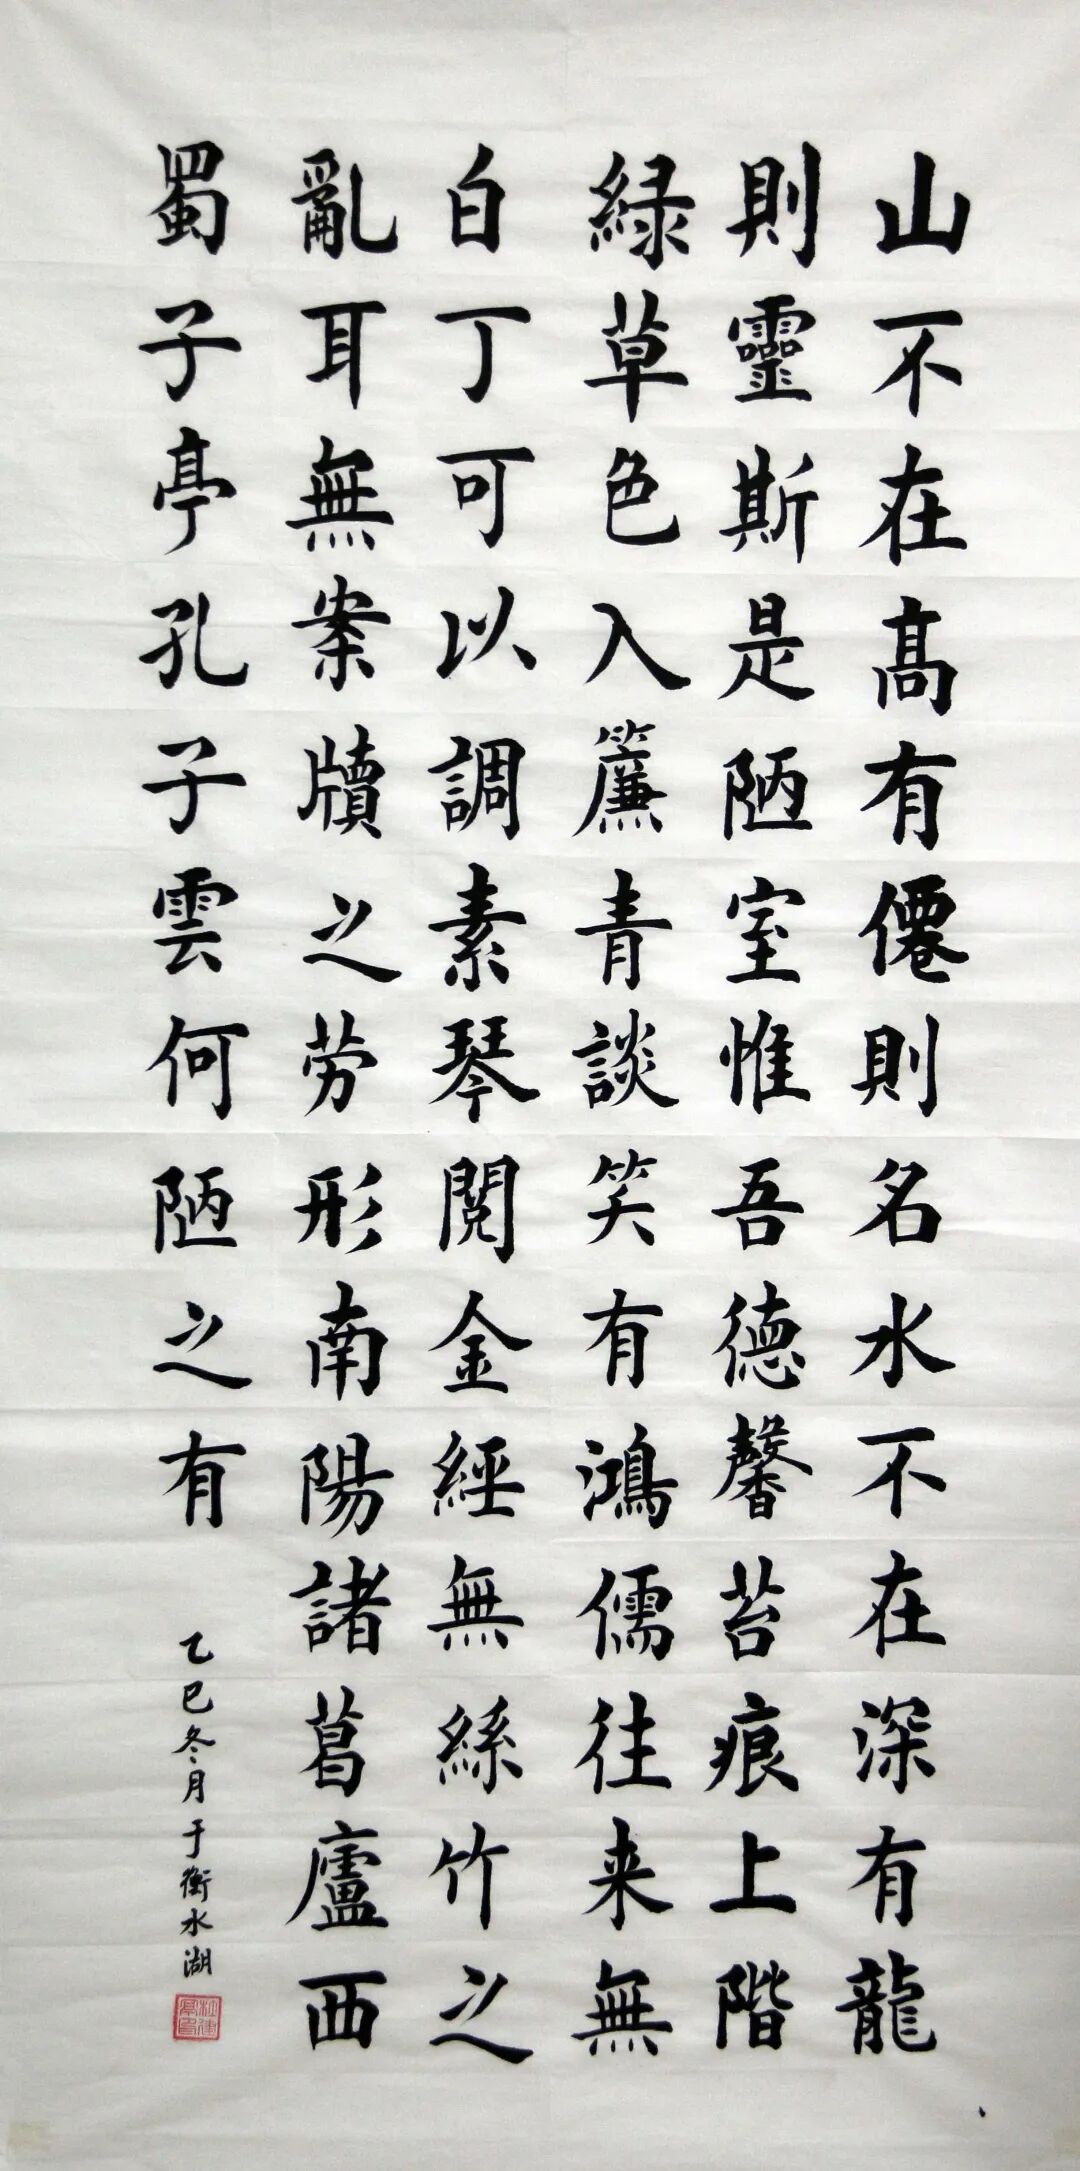 山不在髙有僊則名水不在深有龍
則靈斯是陋室惟吾德馨苔痕上階
緑草色入簾青談笑有鴻儒往来無
白丁可以調素琴閱金經無絲竹之
亂耳無案牘之劳形南陽諸葛廬西
蜀子亭孔子雲何陋之有
乙巳冬月于衡水湖